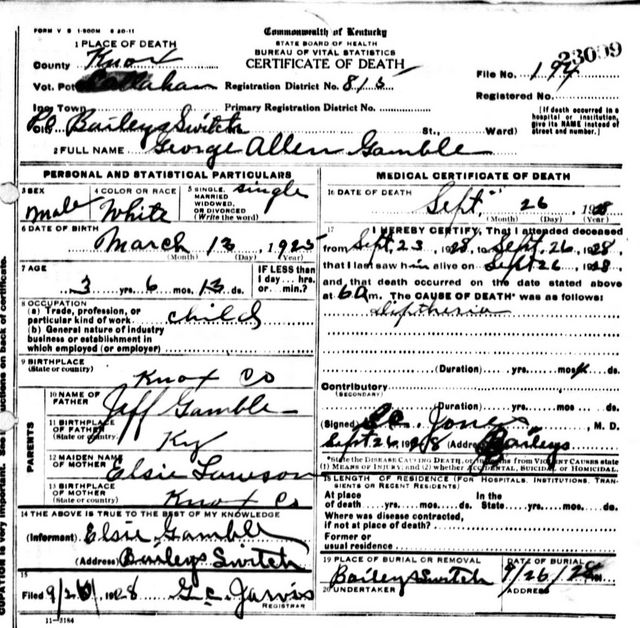 FORM V S 1-500M 6 20-11
Commonwealth of Kentucky
STATE BOARD OF HEALTH
BUREAU OF VITAL STATISTICS
CERTIFICATE OF DEATH
23009
1 PLACE OF DEATH
County Knox
File No. 194
Vot. Pct. Callahan Registration District No. 815
Registered No.
Inc. Town Primary Registration District No.
(If death occurred in a hospital or institution, give its NAME instead of street and number.)
P.O. Baileys Switch St., Ward)
2 FULL NAME George Allen Gamble
PERSONAL AND STATISTICAL PARTICULARS
3 SEX male
4 COLOR OR RACE White
5 SINGLE, MARRIED WIDOWED, OR DIVORCED (Write the word) single
6 DATE OF BIRTH
March 13, 1925
(Month) (Day) (Year)
7 AGE
3 yrs. 6 mos. 13 ds.
IF LESS than 1 day... hrs. or min.?
8 OCCUPATION
(a) Trade, profession, or particular kind of work child
(b) General nature of industry business or establishment in which employed (or employer)
9 BIRTHPLACE
(State or country)
Knox Co
PARENTS
10 NAME OF FATHER Jeff Gamble
11 BIRTHPLACE OF FATHER (State or country) Ky
12 MAIDEN NAME OF MOTHER Elsie
13 BIRTHPLACE OF MOTHER (State or country) Knox Co
14 THE ABOVE IS TRUE TO THE BEST OF MY KNOWLEDGE
(Informant) Elsie Gamble
(Address) Baileys Switch
15
Filed 9/26, 1928 G.C. Jarvis
REGISTRAR
11-3184
MEDICAL CERTIFICATE OF DEATH
16 DATE OF DEATH
Sept. 26 1928
(Month) (Day) (Year)
17 I HEREBY CERTIFY, That I attended deceased
from Sept. 23, 1928, to Sept. 26, 1928,
that I last saw him alive on Sept 26, 1928,
and that death occurred on the date stated above
at 6 a m. The CAUSE OF DEATH* was as follows:
Diptheria
(Duration) yrs. mos. ds.
Contributory
(SECONDARY)
(Duration) yrs. mos. ds.
(Signed) Jones, M. D.
Sept 26, 1928 (Address) Baileys
*State the DISEASE CAUSING DEATH, or in deaths from VIOLENT CAUSES state
(1) MEANS OF INJURY; and (2) whether ACCIDENTAL, SUICIDAL or HOMICIDAL.
18 LENGTH OF RESIDENCE (FOR HOSPITALS, INSTITUTIONS, TRANSIENTS OR RECENT RESIDENTS)
At place of death yrs. mos. ds. In the State yrs. mos. ds.
Where was disease contracted,
if not at place of death?
Former or
usual residence
19 PLACE OF BURIAL OR REMOVAL
Baileys Switch
DATE OF BURIAL
9/26/28
20 UNDERTAKER
ADDRESS